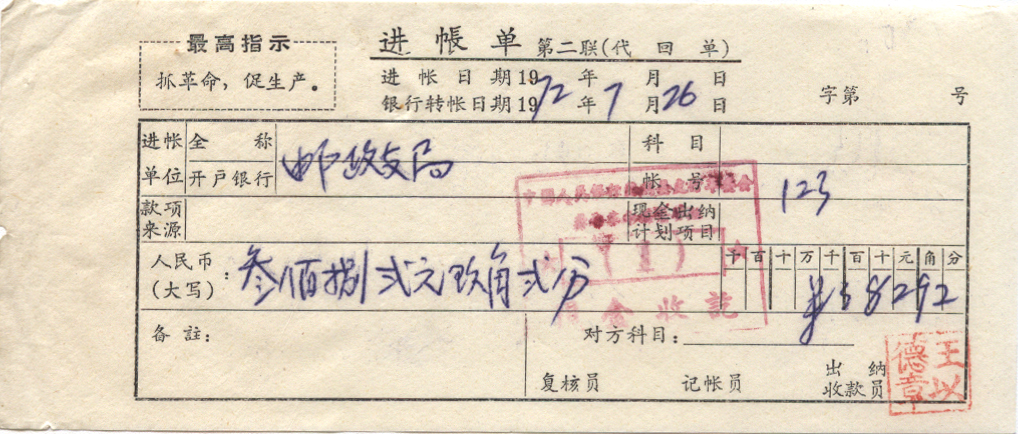 最高指示
抓革命，促生产。
进帳单 第二联(代回单)
进帐日期19 年 月 日
银行转帐日期1972年7月26日
字第 号
进帐单位 全称 邮政支局 科目
开户银行 帐号 123
款项来源 现金出纳计划项目
人民币(大写)： 叁佰捌 弍元玖角弍分
千百十万千百十元角分
¥38292
中国人民
(1)
现金收讫
备註： 对方科目：
复核员 记帐员 出纳收款员
王以德章